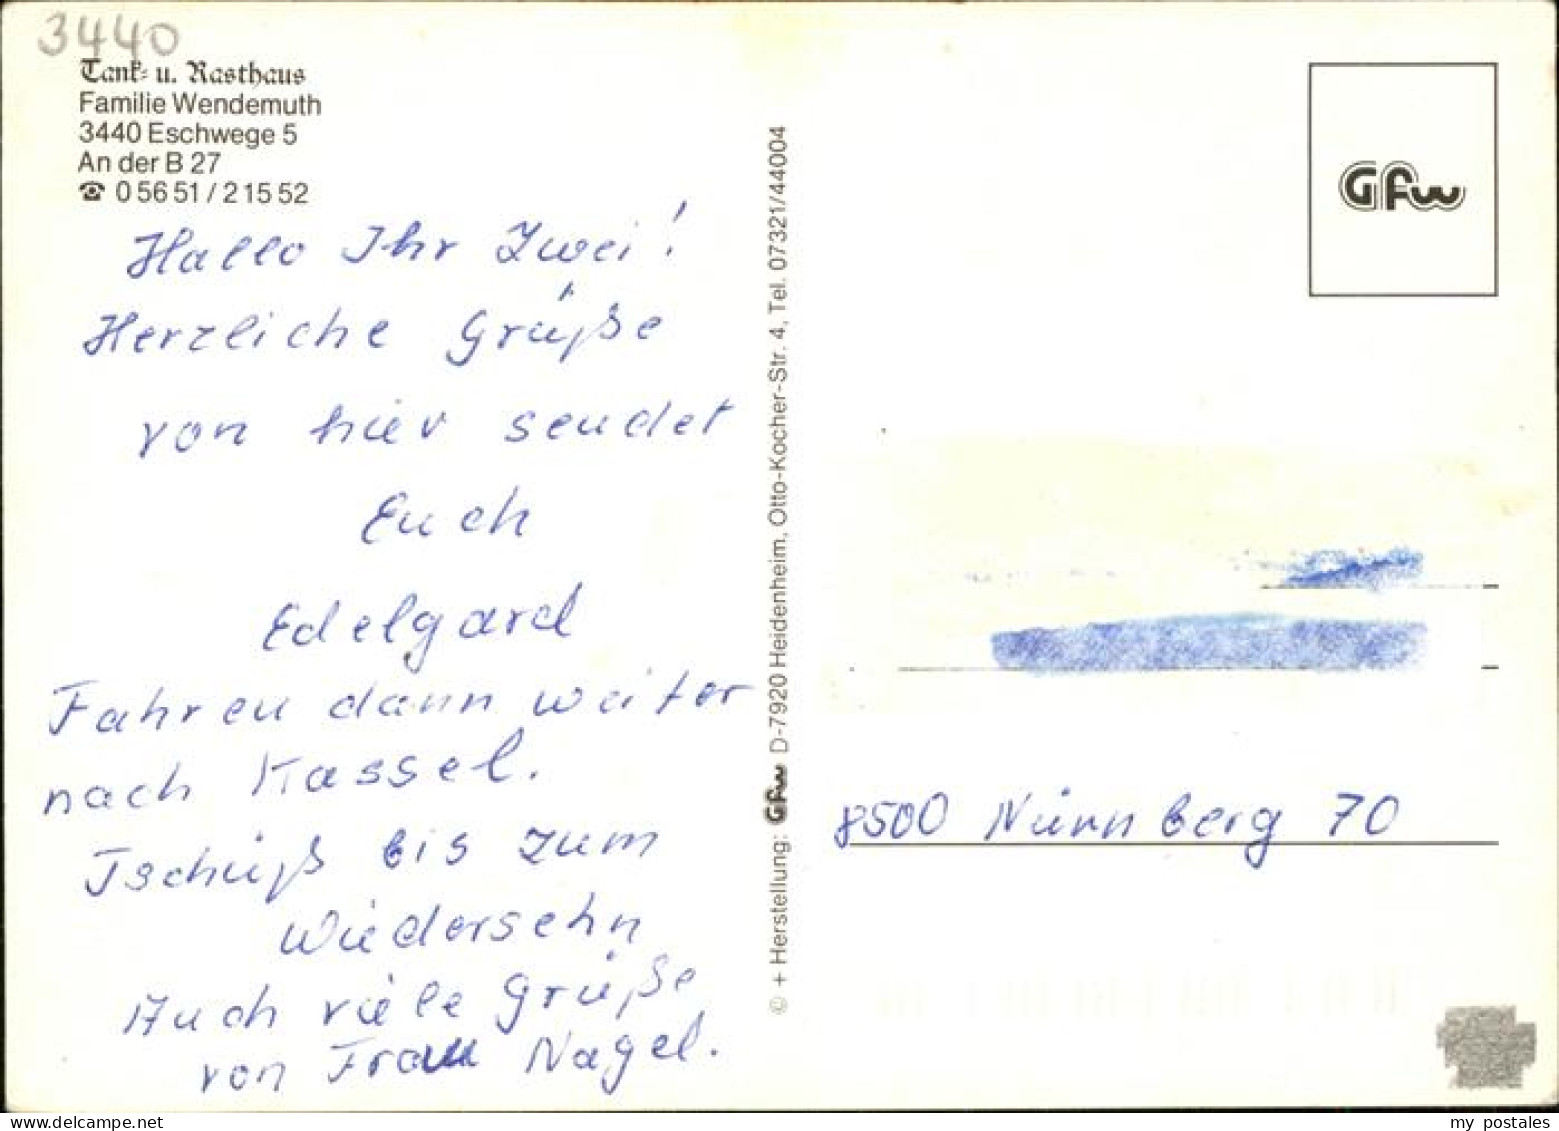 3440
Tank- u. Rasthaus
Familie Wendemuth
3440 Eschwege 5
An der B 27
☎ 0 56 51 / 2 15 52
Hallo Ihr Zwei!
Herzliche Grüße
von hier sendet
Euch
Edelgard
Fahren dann weiter
nach Kassel.
Tschüß bis zum
Wiedersehn
Auch viele Grüße
von Frau Nagel.
© + Herstellung: Gfw D-7920 Heidenheim, Otto-Kocher-Str. 4, Tel. 07321/44004
Gfw
8500 Nürnberg 70
my postales